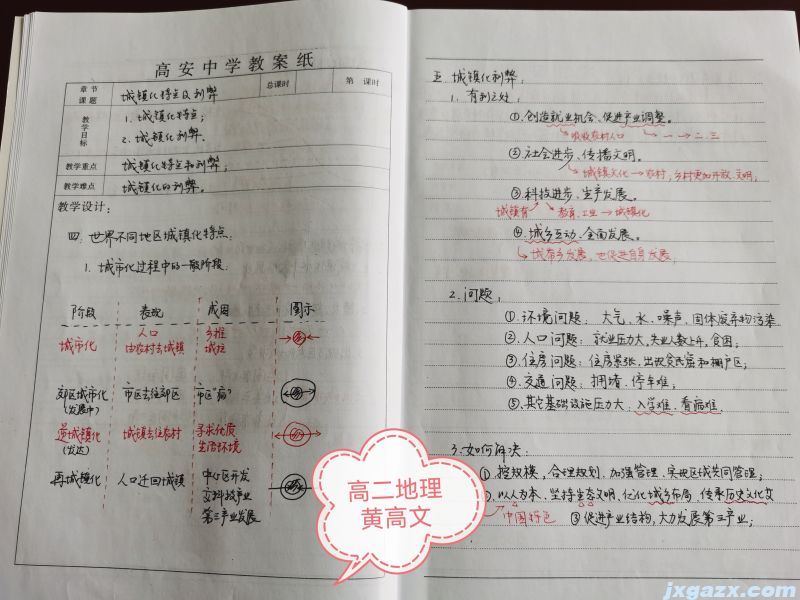 高安中学教案纸
章节课题 城镇化特点及利弊 总课时 第 课时
教学目标 1. 城镇化特点；
2. 城镇化利弊.
教学重点 城镇化特点和利弊；
教学难点 城镇化的利弊。
教学设计：
四. 世界不同地区城镇化特点.
1. 城市化过程中的一般阶段.
阶段 表现 成因 图示
城市化 人口由农村去城镇 乡推城拉
郊区城市化(发展中) 市区去往郊区 市区"病"
逆城镇化(发达) 城镇去往农村 寻求优质生活环境
再城镇化 人口迁回城镇 中心区开发 高科技产业 第三产业发展
五. 城镇化利弊；
1. 有利之处；
①.创造就业机会、促进产业调整。
吸收农村人口 一→二.三
②.社会进步、传播文明.
城镇文化→农村，乡村更加开放.文明;
③.科技进步、生产发展。
城镇有 教育、工业→城镇化
④.城乡互动、全面发展。
城带乡发展，也促进自身发展;
2. 问题；
①.环境问题：大气、水、噪声、固体废弃物污染
②.人口问题：就业压力大，失业人数上升，贫困；
③.住房问题：住房紧张，出现贫民窟和棚户区；
④.交通问题：拥堵、停车难；
⑤.其它基础设施压力大、入学难、看病难.
3. 如何解决：
①.控规模，合理规划、加强管理，实现区域共同管理；
以人为本、坚持生态文明、优化城乡布局、传承历史文化
中国特色
③促进产业结构，大力发展第三产业；
高二地理
黄高文
jxgazx.com